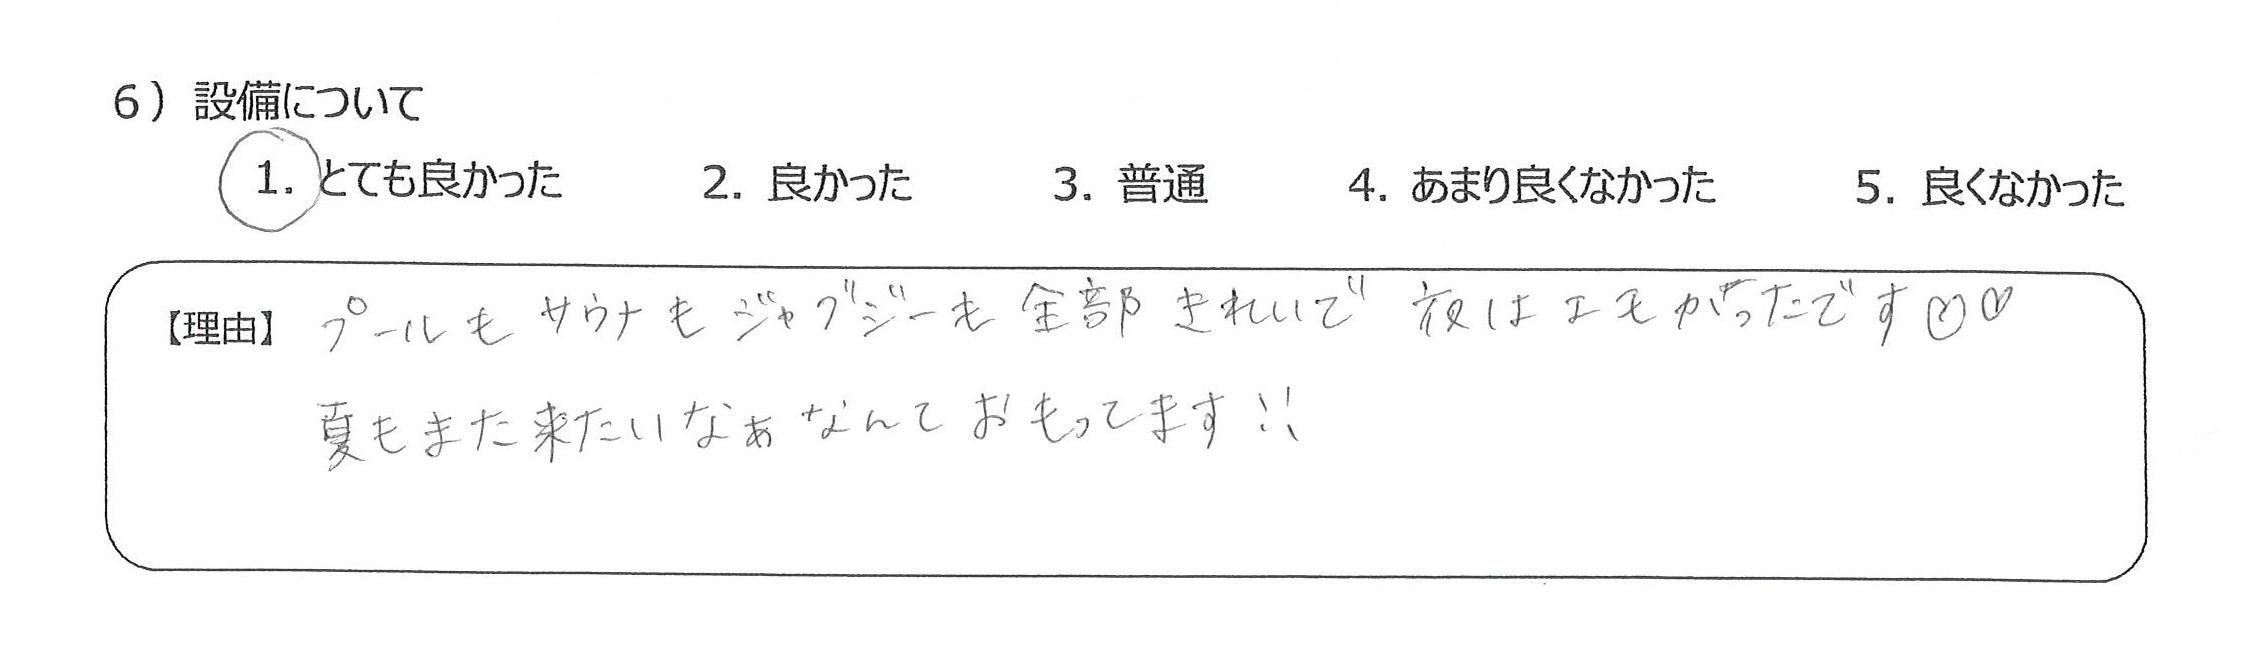 6）設備について
1. とても良かった 2. 良かった 3. 普通 4. あまり良くなかった 5. 良くなかった
【理由】 プールもサウナもジャグジーも全部きれいで夜はエモがったです♡♡
夏もまた来たいなぁなんておもってます!!